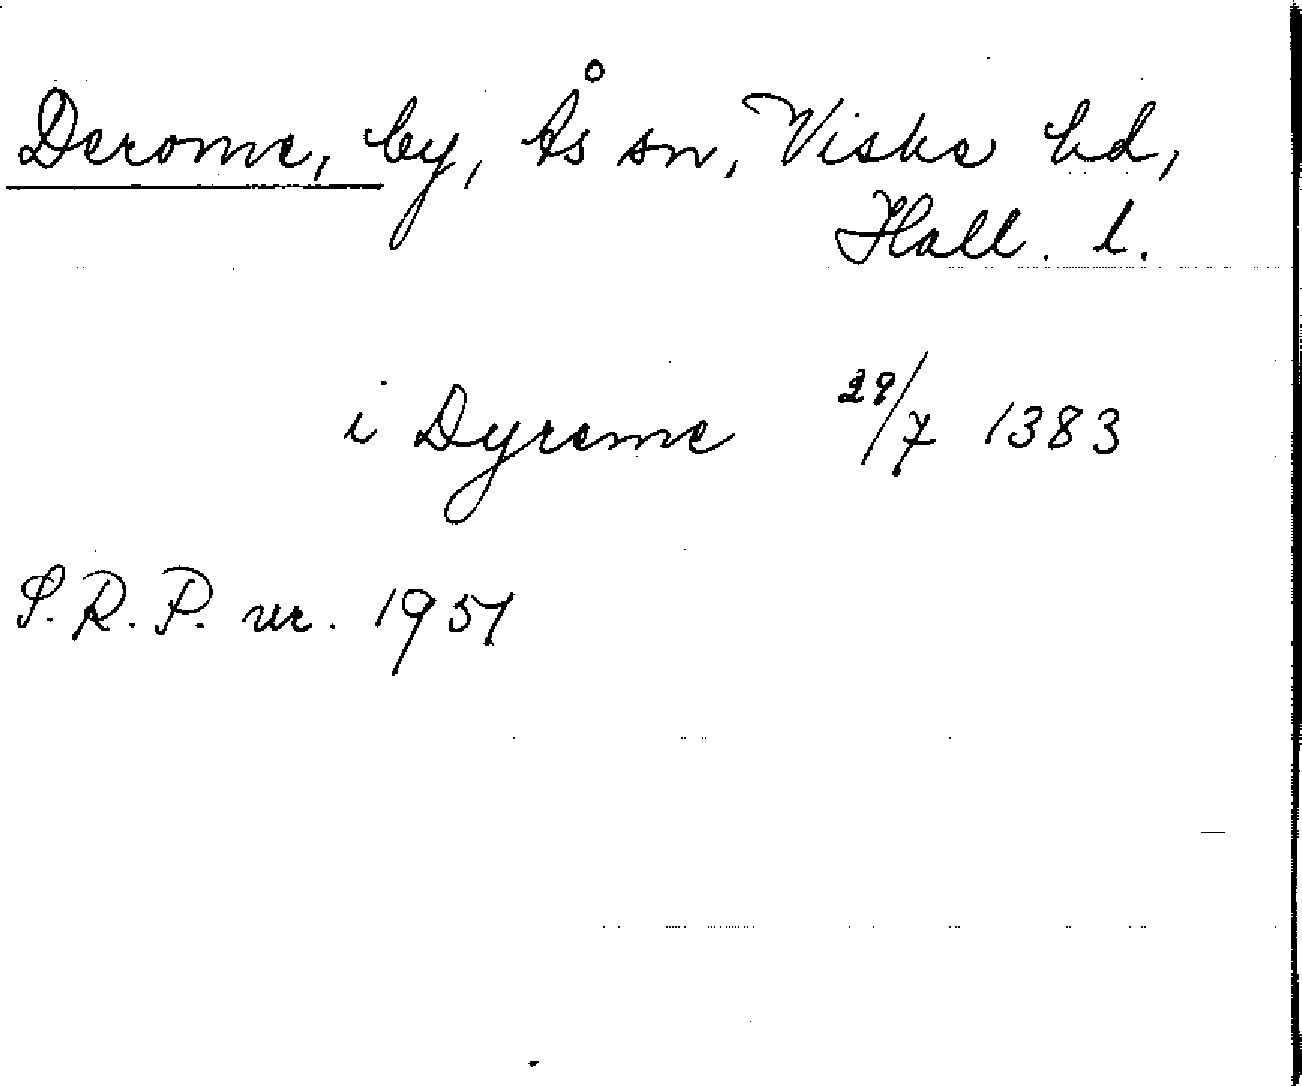 Derome, by, Ås sn, Viske hd,
Hall. l.
i Dyreme 29/7 1383
S.R.P. nr. 1951